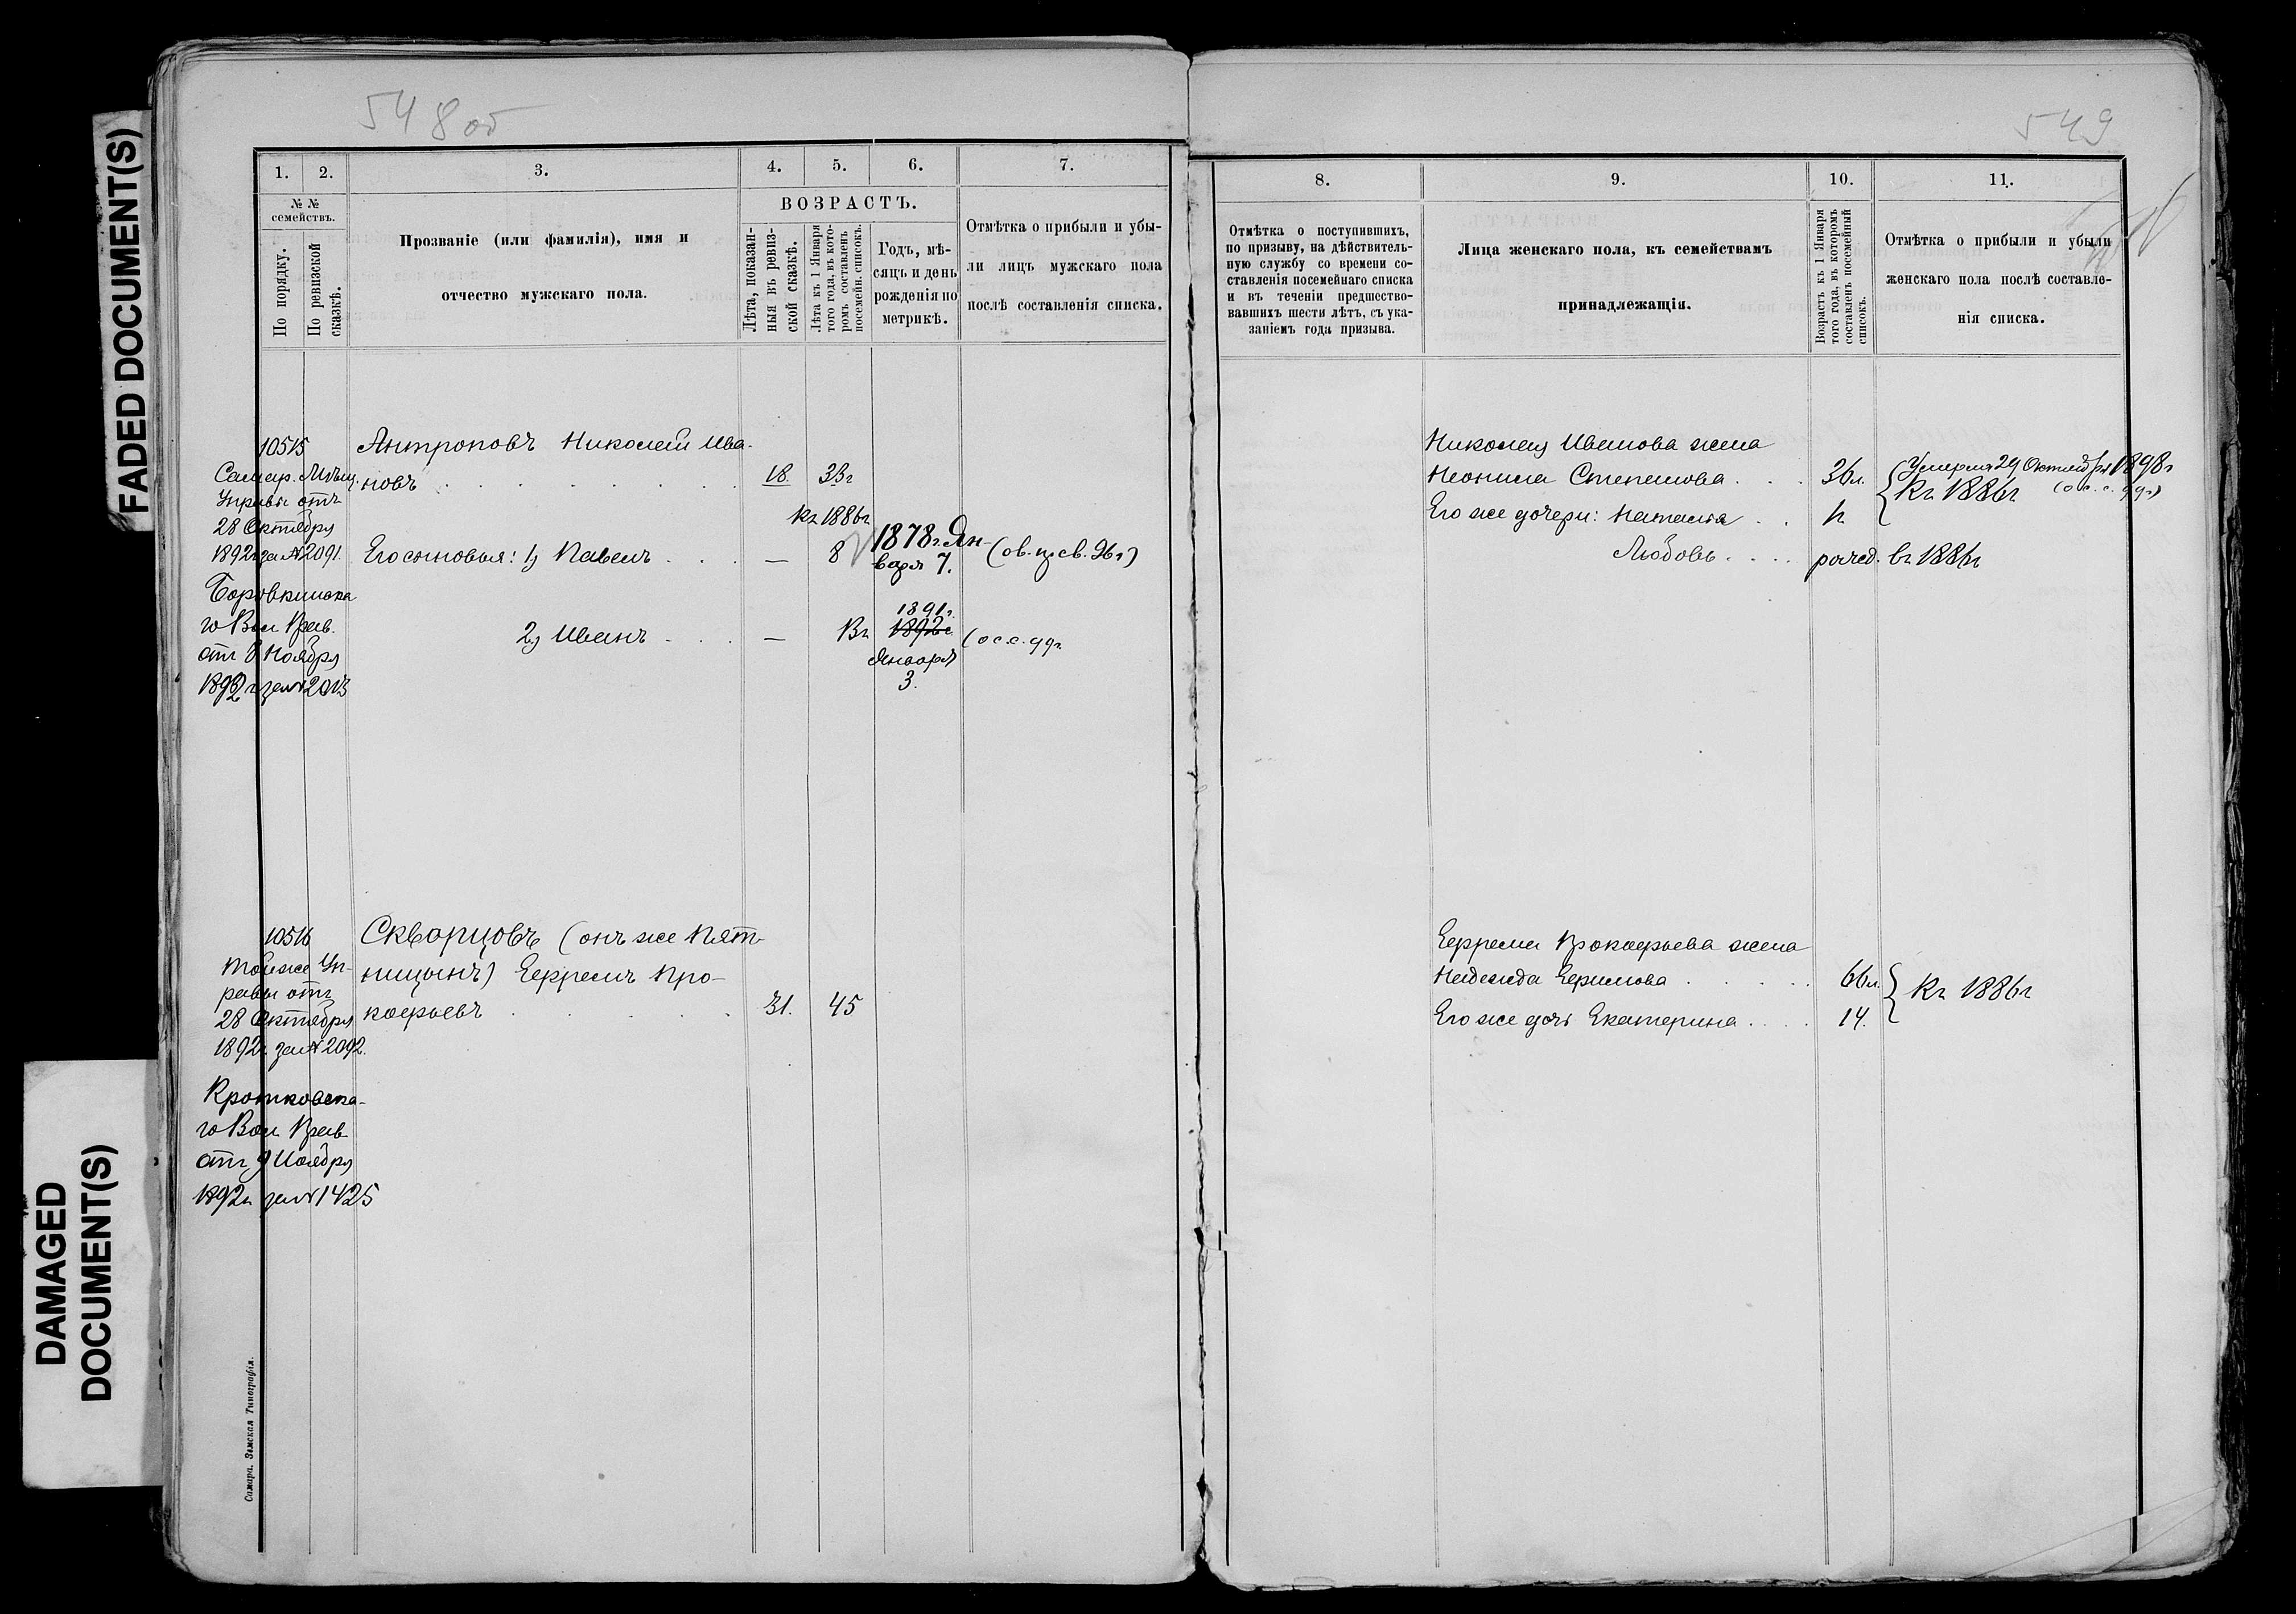 FADED DOCUMENT(S)
DAMAGED
DOCUMENT(S)
548 об
1. 2. 3. 4. 5. 6. 7.
№ №
семействъ.
По порядку.
По ревизской
сказкѣ.
Прозваніе (или фамилія), имя и
отчество мужскаго пола.
ВОЗРАСТЪ.
Лѣта, показан-
ныя въ ревиз-
ской сказкѣ.
Лѣта къ 1 Января
того года, въ кото-
ромъ составленъ
посемейн. списокъ.
Годъ, мѣ-
сяцъ и день
рожденія по
метрикѣ.
Отмѣтка о прибыли и убы-
ли лицъ мужскаго пола
послѣ составленія списка.
10515
Самар. Мѣщ.
Управы отъ
28 Октября
1892г за № 2091.
го Вол Прав.
отъ 8 Ноября
1892 г за №
Антроповъ Николай Ива-
новъ 18. 33г
Къ 1886г
Его сыновья: 1) Павелъ — 8 1878 г. Ян-
варя 7.
2) Иванъ — Въ 1891г.
1892г
Января
3.
(о с.с. 99г.
10516
Той же Уп-
равы отъ
28 Октября
1892г за № 2092.
Кротковска-
го Вол Прав
отъ 9 Ноября
1892г за № 1425
Скворцовъ (онъ же Пят-
ницынъ) Ефремъ Про-
кофьевъ 31. 45
Самара. Земская Типографія.
549
8. 9. 10. 11.
Отмѣтка о поступившихъ,
по призыву, на дѣйствитель-
ную службу со времени со-
ставленія посемейнаго списка
и въ теченіи предшество-
вавшихъ шести лѣтъ, съ ука-
заніемъ года призыва.
Лица женскаго пола, къ семействамъ
принадлежащія.
Возрастъ къ 1 Января
того года, въ которомъ
составленъ посемейный
списокъ.
Отмѣтка о прибыли и убыли
женскаго пола послѣ составле-
нія списка.
Николая Иванова жена
Неонила Степанова 36л. Умерла 29 Октября 1898г
Къ 1886г (о с. с. 99г)
Его же дочери: Наталья
Любовь рожд. въ 1886г
Ефрема Прокофьева жена
Надежда Ефимова 66л.
Къ 1886г
Его же дочь Екатерина 14.